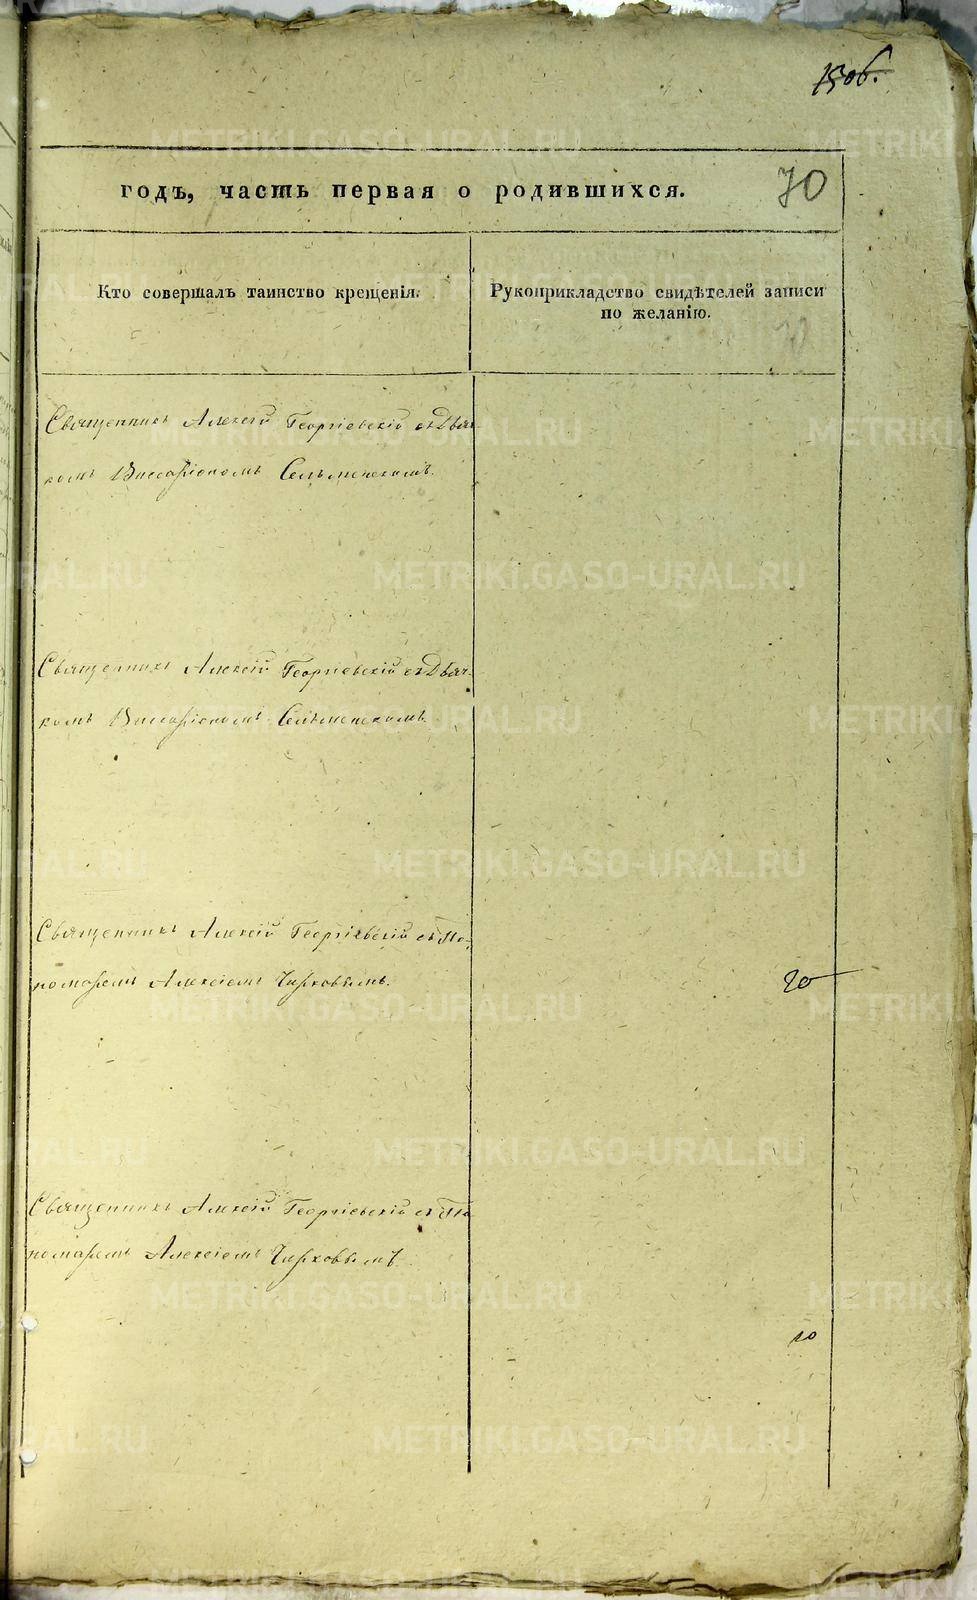 METRIKI.GASO-URAL.RU
годъ, часть первая о родившихся.
70
Кто совершалъ таинство крещенія.
Рукоприкладство свидѣтелей записи
по желанію.
Священникъ Алексій Георгіевскій съ Дьяч-
комъ Виссаріономъ Сельменскомъ.
Священникъ Алексій Георгіевскій съ Дьяч-
комъ Виссаріономъ Сельменскомъ.
Священникъ Алексій Георгіевскій съ По-
номаремъ Алексіемъ Чирковымъ.
20
Священникъ Алексій Георгіевскій съ По
номаремъ Алексіемъ Чирковымъ.
20